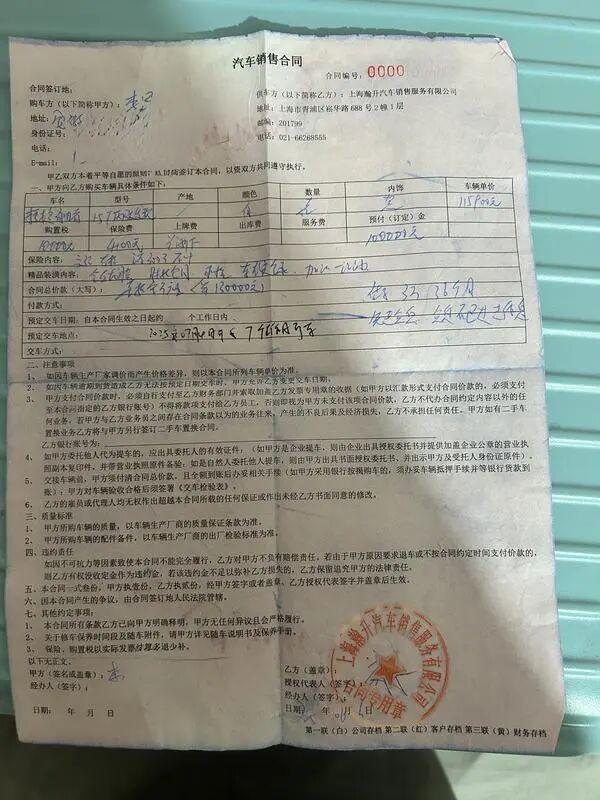 汽车销售合同
合同编号：0000
合同签订地：
供车方（以下简称乙方）：上海瀚升汽车销售服务有限公司
购车方（以下简称甲方）：
地址：上海市青浦区崧华路688号2幢1层
地址：
邮编：201799
身份证号：
电话：021-66268555
电话：
E-mail：
甲乙双方本着平等自愿的原则，经协商签订本合同，以资双方共同遵守执行。
一、甲方向乙方购买车辆具体条件如下：
车名 型号 产地 颜色 数量 内饰 车辆单价
115900元
购置税 保险费 上牌费 出库费 服务费 预付（订定）金
10000元 4100元 10000元
保险内容：
精品装潢内容：
合同总价款（大写）： 130000元）
付款方式：
预定交车日期：自本合同生效之日起的 个工作日内
预定交车地点：
交车方式：
二、注意事项
1、如因车辆生产厂家调价而产生价格差异，则以本合同所列车辆单价为准。
2、如因车辆逾期到货造成乙方无法按预定日期交车时，甲方允许乙方变更交车日期。
3、甲方支付合同价款时，必须自行支付至乙方财务部门并索取加盖乙方发票专用章的收据（如甲方以汇款形式支付合同价款的，必须支付
至本合同指定的乙方银行账号）不得将款项支付给乙方员工，否则即视为甲方未支付该项合同价款，乙方不代办合同约定内容以外的任
何业务，若甲方与乙方业务员之间存在合同条款以为的业务往来，产生的不良后果及经济损失，乙方不承担任何责任。甲方如有二手车
置换业务乙方将与甲方另行签订二手车置换合同。
乙方银行账号为：
4、如甲方委托他人代为提车的，应出具委托人的有效证件，（如甲方是企业提车，则由企业出具授权委托书并提供加盖企业公章的营业执
照副本复印件，并带营业执照原件备验；如是自然人委托他人提车，则由甲方出具书面授权委托书，并出示甲方及受托人身份证原件）。
5、交接车辆前，甲方须付清合同总价款，且全额到账后办妥相关手续（如甲方采用银行按揭购车的，须办妥车辆抵押手续并等银行贷款到
账）；甲方对车辆验收合格后须签署《交车检验表》。
6、乙方的雇员或代理人均无权作出超越本合同所载的任何保证或作出未经乙方书面同意的修改。
三、质量标准
1、甲方所购车辆的质量，以车辆生产厂商的质量保证条款为准。
2、甲方所购车辆的配件准备，以车辆生产厂商的出厂检验标准为准。
四、违约责任
如因不可抗力等因素致使本合同不能完全履行，乙方对甲方不负有赔偿责任。若由于甲方原因要求退车或不按合同约定时间支付价款的，
则乙方有权没收定金作为违约金，若该违约金不足以弥补乙方损失的，乙方保留追究甲方的法律责任。
五、本合同一式叁份，甲方执壹份，乙方执贰份，经甲方签字或者盖章、乙方授权代表签字并盖章后生效。
六、因本合同产生的争议，由合同签订地人民法院管辖。
七、其他约定事项：
1、本合同所有条款乙方已向甲方明确释明，甲方无任何异议且会严格履行。
2、关于修车保养时间段及随车附件，请甲方详见随车说明书及保养手册。
3、保险、购置税以实际发票结算多退少补。
以下无正文。
甲方（签名或盖章）：
乙方（盖章）：
经办人（签字）：
授权代表人（签字）：
经办人（签字）：
日期： 年 月 日
日期： 年 月 日
上海瀚升汽车销售服务有限公司
合同专用章
第一联（白）公司存档 第二联（红）客户存档 第三联（黄）财务存档